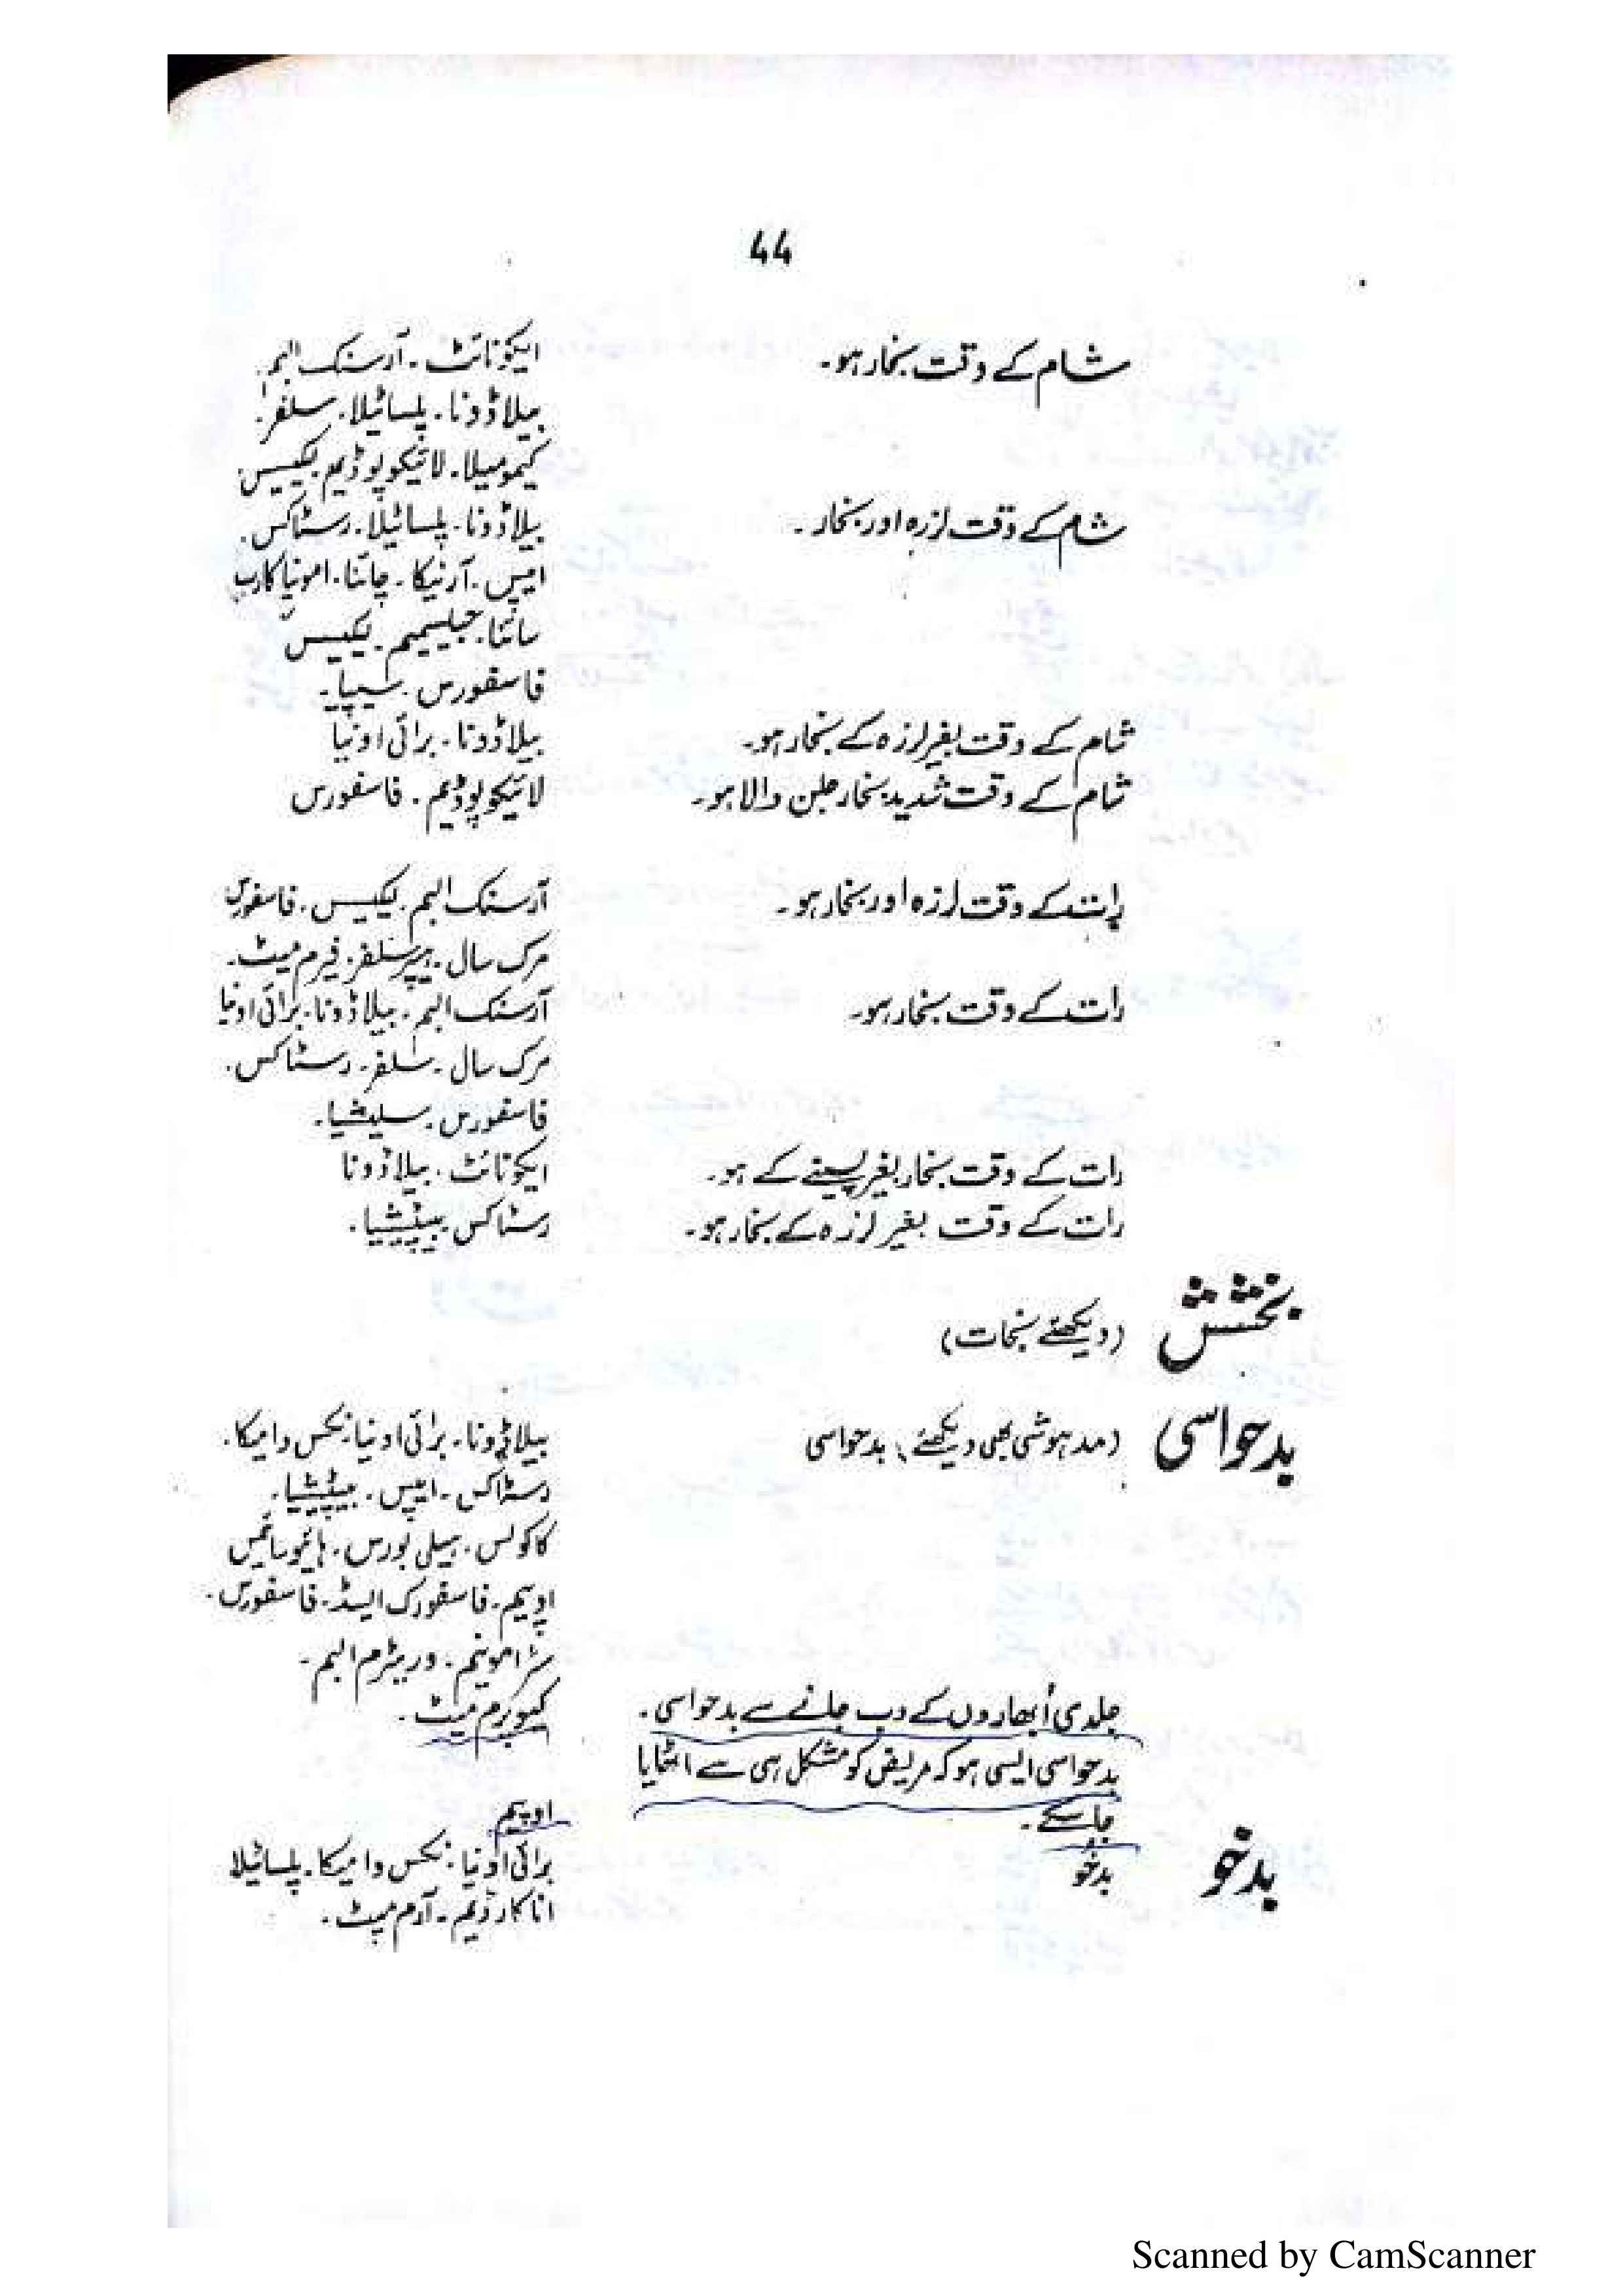 44
شام کے وقت بخار ہو۔ ایکونائٹ۔ آرسنک البم۔
بیلاڈونا۔ پلساٹیلا۔ سلفر۔
کیمومیلا۔ لائیکوپوڈیم۔ لیکیسس۔
شام کے وقت لرزہ اور بخار۔ بیلاڈونا۔ پلساٹیلا۔ رسٹاکس۔
ایپس۔ آرنیکا۔ چائنا۔ امونیا کارب
سائنا۔ جیلسیمیم۔ لیکیسس
فاسفورس۔ سیپیا۔
شام کے وقت بغیر لرزہ کے بخار ہو۔ بیلاڈونا۔ برائی اونیا
شام کے وقت شدید بخار جلن والا ہو۔ لائیکوپوڈیم۔ فاسفورس
رات کے وقت لرزہ اور بخار ہو۔ آرسنک البم۔ لیکیسس۔ فاسفورس
مرک سال۔ ہیپر سلفر۔ فیرم میٹ۔
رات کے وقت بخار ہو۔ آرسنک البم۔ بیلاڈونا۔ برائی اونیا
مرک سال۔ سلفر۔ رسٹاکس۔
فاسفورس۔ سلیشیا۔
رات کے وقت بخار بغیر پسینے کے ہو۔ ایکونائٹ۔ بیلاڈونا
رات کے وقت بغیر لرزہ کے بخار ہو۔ رسٹاکس۔ بیپٹیشیا۔
بخشش (دیکھئے نجات)
بدحواسی (مدہوشی بھی دیکھئے) بدحواسی بیلاڈونا۔ برائی اونیا۔ نکس وامیکا۔
رسٹاکس۔ ایپس۔ بیپٹیشیا۔
کاکولس۔ ہیلی بورس۔ ہائیوسائمس
اوپیم۔ فاسفورک ایسڈ۔ فاسفورس۔
سٹرامونیم۔ وریٹرم البم۔
جلدی اُبھاروں کے دب جانے سے بدحواسی۔ کیوپرم میٹ۔
بدحواسی ایسی ہو کہ مریض کو مشکل ہی سے اٹھایا
جا سکے۔ اوپیم
بدخو بدخو برائی اونیا۔ نکس وامیکا۔ پلساٹیلا
اناکارڈیم۔ آرم میٹ۔
Scanned by CamScanner